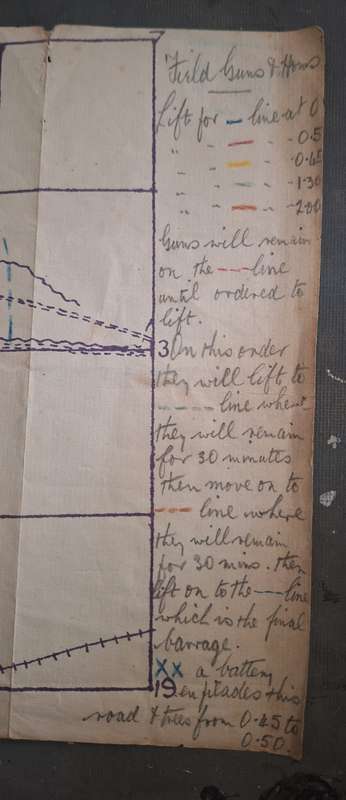 Field Guns & Hows
Lift for — line at 0
" - - -0.5
" - - -0.45
" - - -1.30
" - - -2.00
Guns will remain
on the --- line
until ordered to
lift.
3
On this order
they will lift to
---- line where
they will remain
for 30 minutes
then move on to
--- line where
they will remain
for 30 mins. then
lift on to the --- line
which is the final
barrage.
XX a battery
19
enfilades this
road & trees from 0.45 to
0.50.